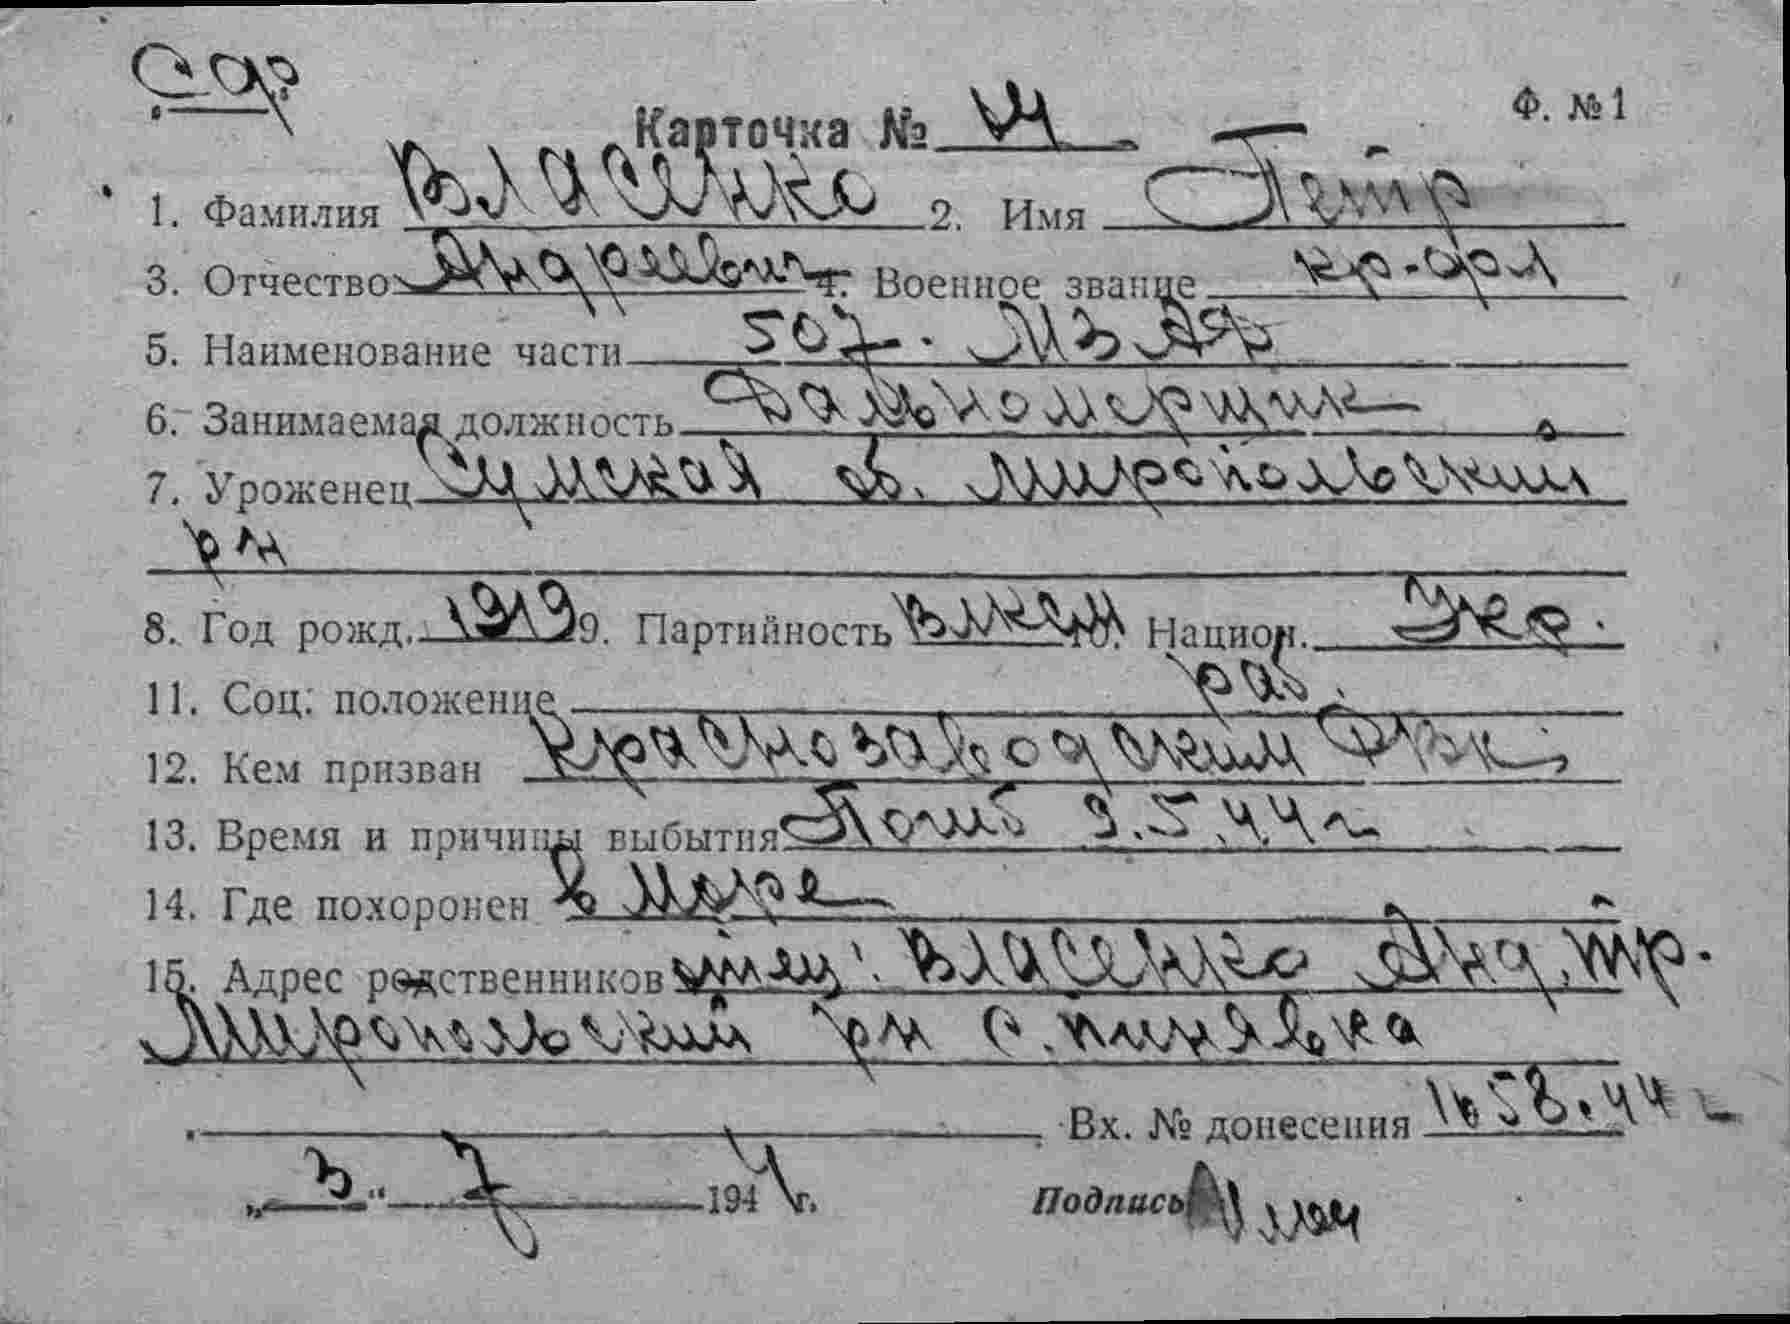 Ф. №1
Карточка №
1. Фамилия Власенко 2. Имя Петр
3. Отчество Андреевич 4. Военное звание кр-фл
5. Наименование части 507. МЗАД
6. Занимаемая должность Дальномерщик
7. Уроженец Сумская об. Миропольский
рн
8. Год рожд. 1919 9. Партийность ВЛКСМ 10. Национ. Укр.
11. Соц. положение раб.
12. Кем призван Краснозаводским РВК
13. Время и причины выбытия Погиб 9.5.44 г
14. Где похоронен в море
15. Адрес родственников отец: Власенко Анд. тр.
Миропольский рн с. Пинявка
Вх. № донесения 1658.44 г
„3“ 7 1944 г.
Подпись